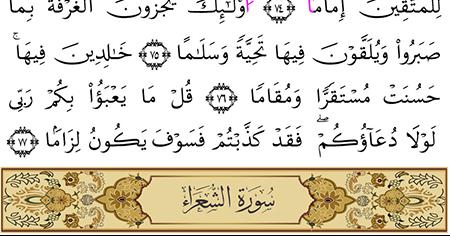 لِلْمُتَّقِينَ إِمَامًا ﴿٧٤﴾ أُوْلَٰٓئِكَ يُجْزَوْنَ ٱلْغُرْفَةَ بِمَا
صَبَرُواْ وَيُلَقَّوْنَ فِيهَا تَحِيَّةً وَسَلَٰمًا ﴿٧٥﴾ خَٰلِدِينَ فِيهَاۚ
حَسُنَتْ مُسْتَقَرًّا وَمُقَامًا ﴿٧٦﴾ قُلْ مَا يَعْبَؤُاْ بِكُمْ رَبِّى
لَوْلَا دُعَآؤُكُمْۖ فَقَدْ كَذَّبْتُمْ فَسَوْفَ يَكُونُ لِزَامًۢا ﴿٧٧﴾
سُورَةُ الشُّعَرَاء